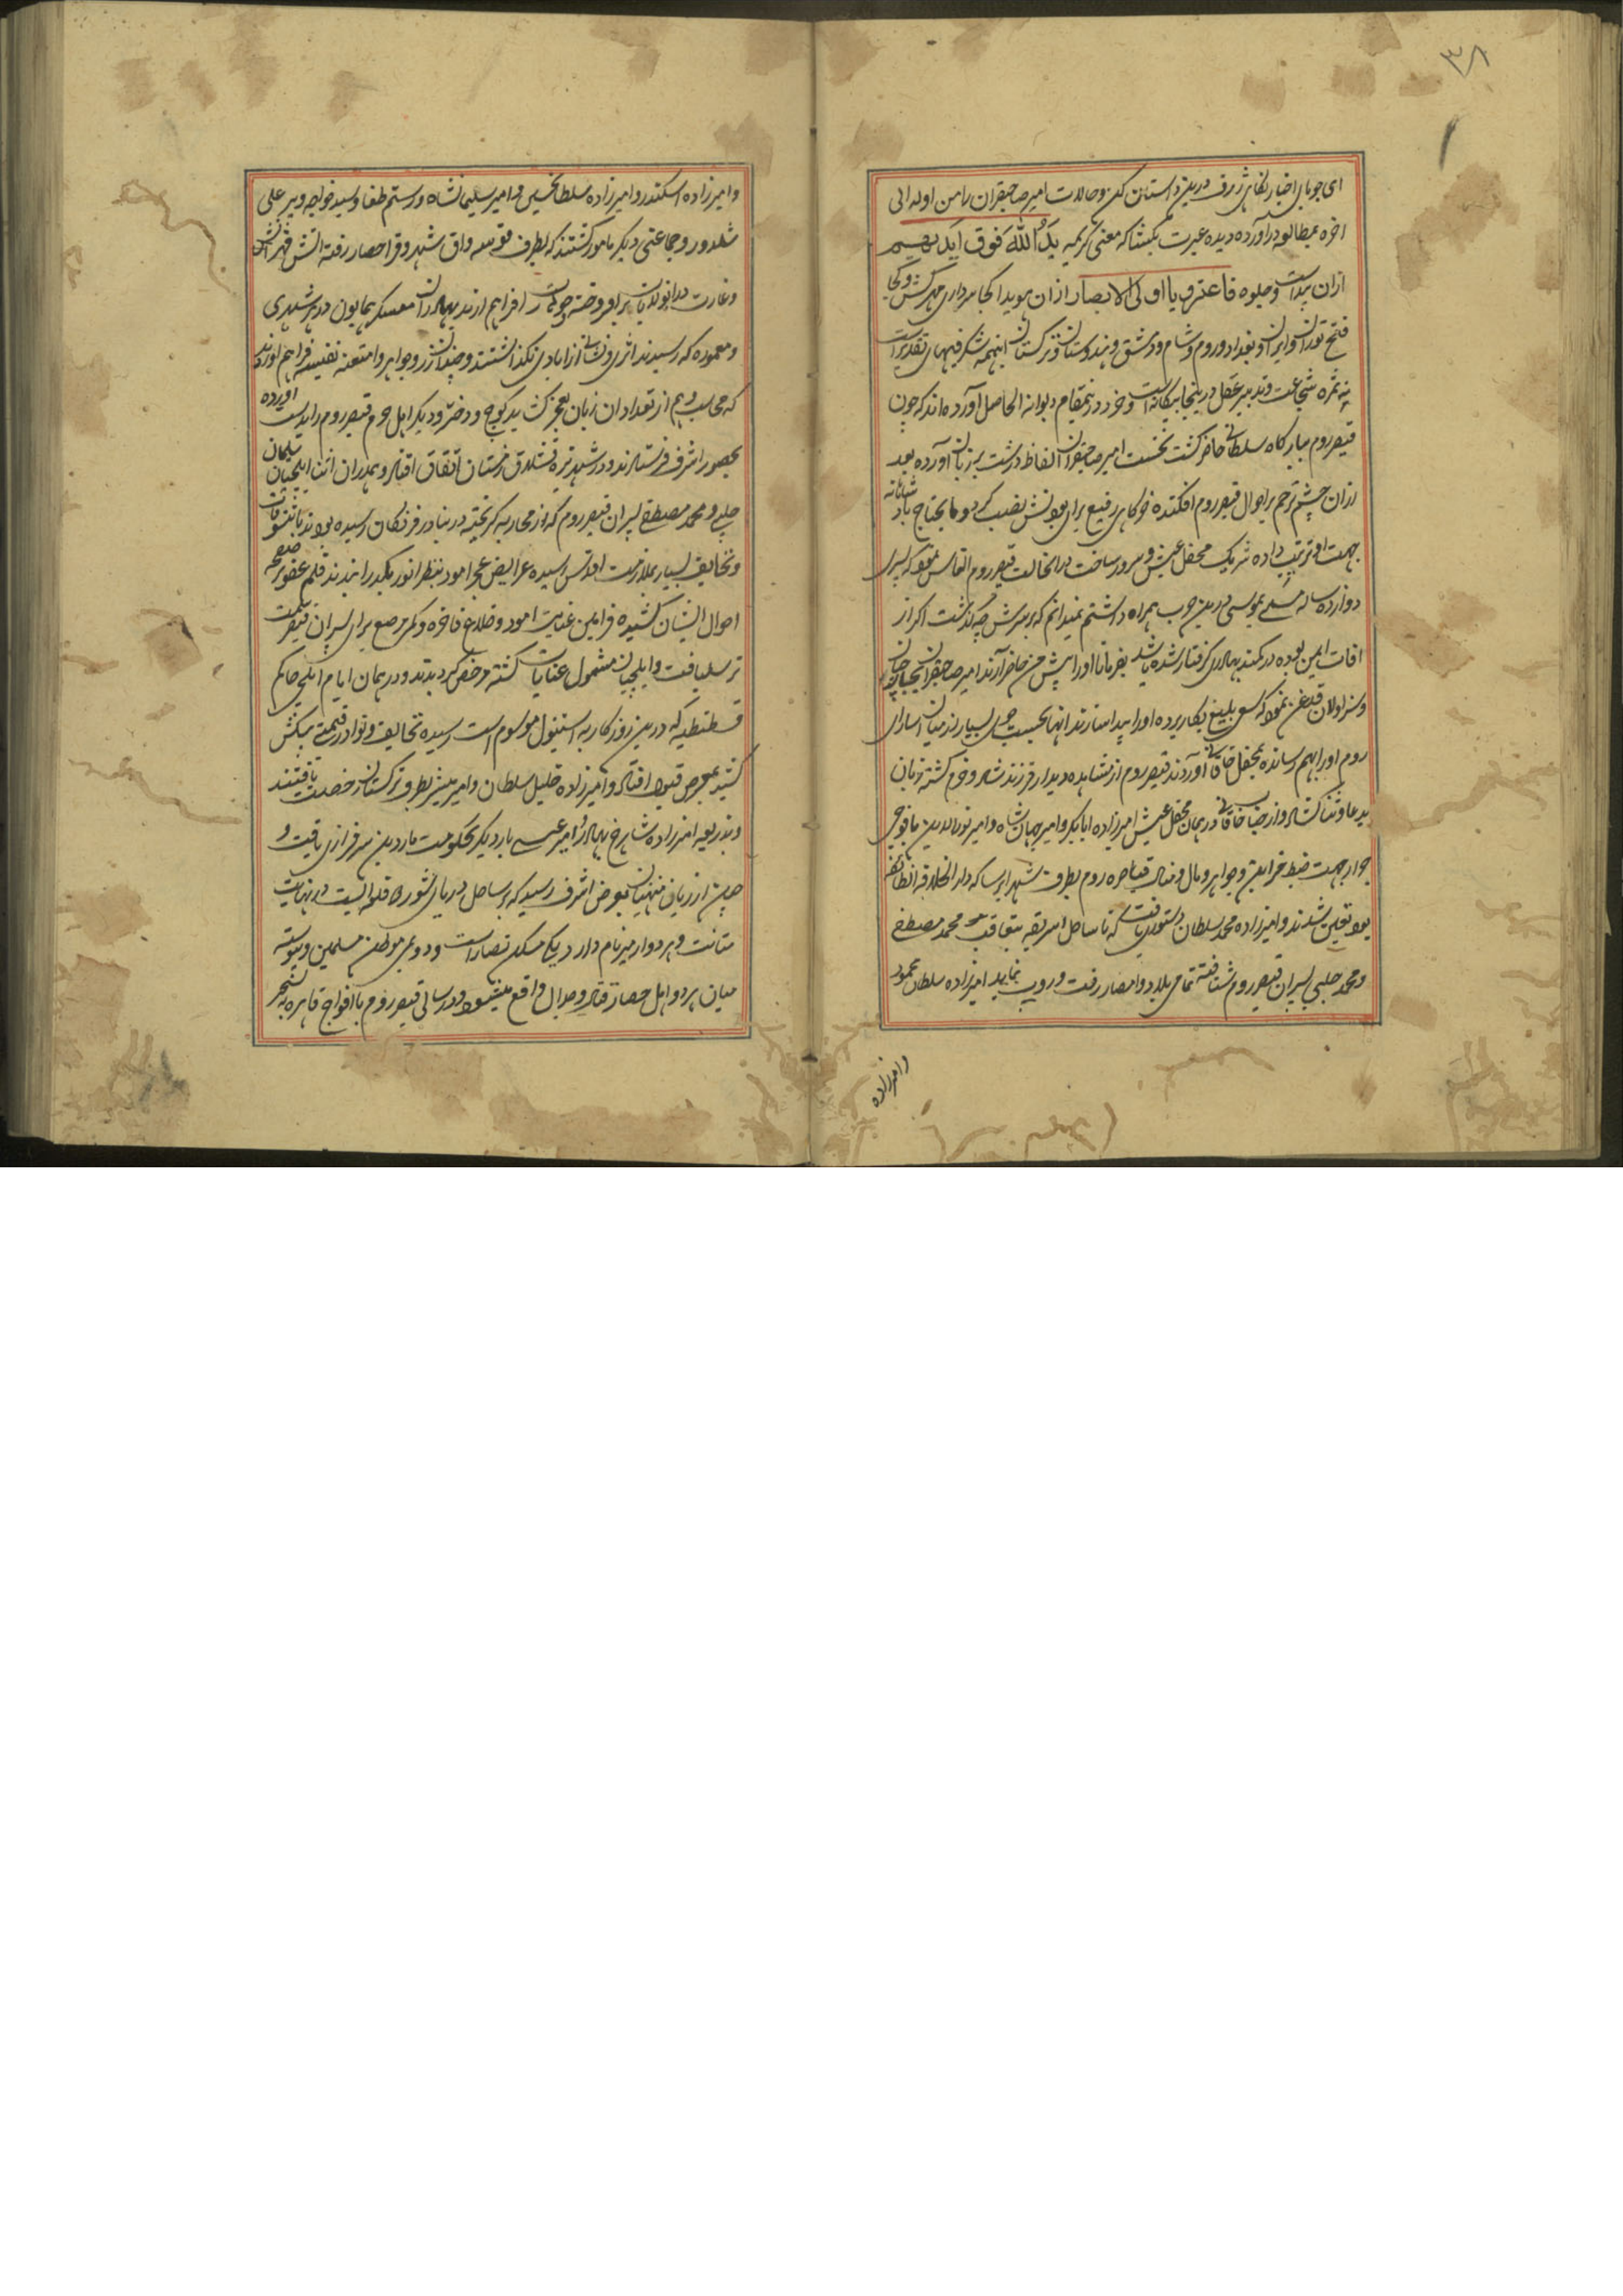 ۳۸
ای جویای اخبار نگاهی ژرف درین داستان کن و حالات امیر صاحبقران را من اوله الی
اخره بمطالعه درآورده دیده عبرت بگشا که معنی کریمه یَدُ اللّٰه فَوْقَ اَیدِیهِم
ازان پیداست و جلوه فاعتبروا یا اولی الابصار ازان هویدا کجا سرداری هر کش و کجا
فتح توران و ایران و بغداد و روم و شام و دمشق و هندوستان و ترکستان اینهمه شکرفیهای تقدیر است
نه ثمره شجاعت و تدبیر عقل درینجا بیکانه است و خرد درینمقام دیوانه الحاصل آورده اند که چون
قیصر روم ببارگاه سلطانی حاضر گشت نخست امیر صاحبقران الفاظ درشت بر زبان آورده بعد
ازان چشم ترحم بر احوال قیصر روم افکنده خرگاهی رفیع برای بودنش نصب کرد و مایحتاج شاهانه
بجهت او ترتیب داده شریک محفل عیش و سرور ساخت درانحالت قیصر روم التماس نمود که پسری
دوازده ساله مسمی بموسی درین حرب همراه داشتم نمیدانم که بر سرش چه گذشت اگر از
افات ایمن بوده در کمند بهادری گرفتار شده باشد بفرمایند تا اورا پیش من حاضر آرند امیر صاحبقران
وسزاولان قدغن نمود که سعی بلیغ بکار برده اورا پیدا سازند انها بجست و جوی بسیار از میان اسارای
روم اورا بهم رسانده بمحفل خاقانی آوردند قیصر روم از مشاهده دیدار فرزند شاد و خرم گشته زبان
بدعا و ثنا گشاد و از جناب خاقانی در همان محفل عیش امیرزاده ابابکر و امیر جهان شاه و امیر نورالدین با فوجی
جرار بجهت ضبط خزاین و جواهر و مال و منال قیاصره روم بطرف شهر ابرسا که دار الخلافه انطائفه
بود تعین شدند و امیرزاده محمد سلطان دستوری یافت که تا ساحل اسریقه بتعاقب محمد مصطفی
و محمد چلبی پسران قیصر روم شتافته تمامی بلاد و امصار رفت و روب نماید امیرزاده سلطان محمود
وامیرزاده
وامیرزاده اسکندر و امیرزاده سلطان حسین و امیر سلیمانشاه و رستم طغا و سید خواجه و پیر علی
سلدوز و جماعتی دیگر مامور گشتند که بطرف قونیه و اق شهر و قرا حصار رفته اتش قهر
و غارت درانولایت برافروخته افراهم ارند بهادران معسکر همایون در هر شهری
و معموره که رسیدند اثری و نشانی از ابادی نگذاشتند و چندان زر و جواهر و امتعه نفیسه فراهم اوردند
که محاسب وهم از تعداد ان زبان بعجز کشید کوچ و دختر و دیگر اهل حرم قیصر روم را بدست اورده
بحضور اشرف فرستادند و در شهر تیره قشلاق زمستان اتفاق افتاد و همدران اثنا ایلچیان سلیمان
چلبی و محمد مصطفی پسران قیصر روم که از محاربه گریخته در بنادر فرنگان رسیده بودند با تنسوقات
و تحایف بسیار بملازمت اقدس رسیده عرایض عجز امود بنظر انور گذرانیدند قلم عفو بر صفحه
احوال ایشان کشیده فرامین عنایت امود و خلاع فاخره و کمر مرصع برای پسران قیصر سمت
ترسیل یافت و ایلچیان مشمول عنایات گشته مرخص گردیدند و در همان ایام ایلچی حاکم
قسطنطیه که درین روزگار به استنبول موسوم است رسیده تحایف و نوادر قیمتی پیشکش
کشید بمعرض قبول افتاد و امیرزاده خلیل سلطان و امیر مبشر بطرف ترکستان رخصت یافتند
و بذریعه امیرزاده شاهرخ بهادر امیر عیسی بار دیگر بحکومت ماردین سرفرازی یافت و
از زبان منهیان بعرض اشرف رسید که بر ساحل دریای شور قلعه ایست در نهایت
متانت و هر دو ازمیر نام دارد یکی مسکن نصارا است و دومی موطن مسلمین و پیوسته
میان هر دو اهل حصار قتال و جدال واقع میشود و در سالی قیصر روم با افواج قاهره به تسخیر